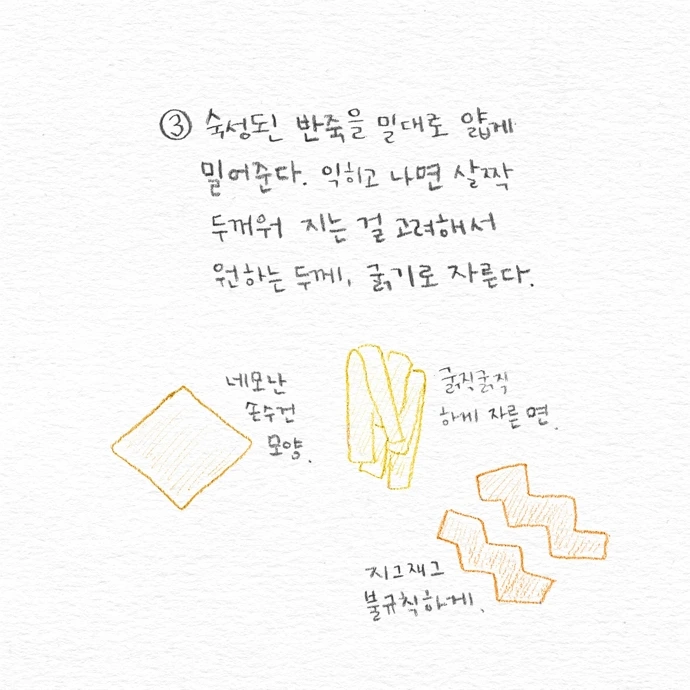 ③ 숙성된 반죽을 밀대로 얇게
밀어준다. 익히고 나면 살짝
두꺼워 지는 걸 고려해서
원하는 두께, 굵기로 자른다.
네모난
손수건
모양.
굵직굵직
하게 자른 면.
지그재그
불규칙하게.